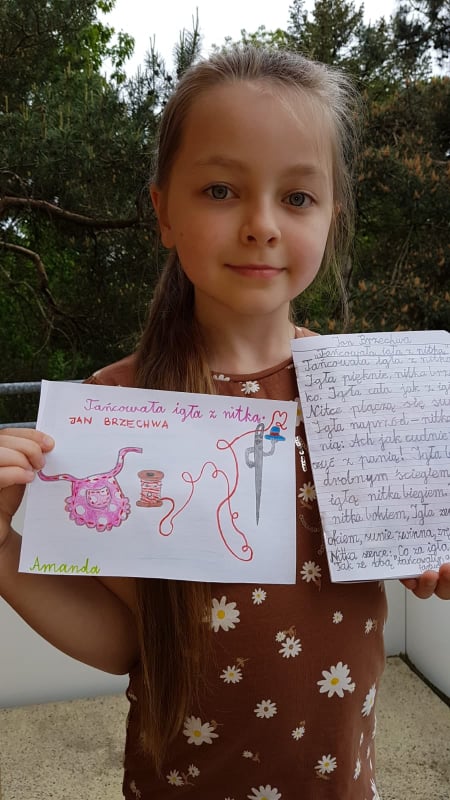 Tańcowała igła z nitką.
JAN BRZECHWA
Amanda
Jan Brzechwa
Tańcowała igła z nitką
Tańcowała igła z nitk
Igła pięknie, nitka brz
ko. Igła cała jak z ig
Nitce plączą się su
Igła naprzód - nitka
nią: Ach jak cudnie
szyć z panią! Igła
drobnym ściegiem
igłą nitka biegiem.
nitka bokiem, Igła ze
okiem, sunie zwinna, zr
Nitka szepce: "Co za igła
Jak ze sobą tańcowały